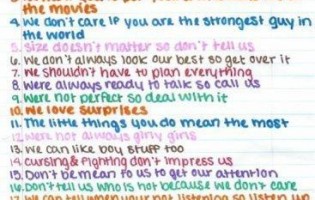 the movies
4. We don't care if you are the strongest guy in
the world
5. size doesn't matter so don't tell us
6. we don't always look our best so get over it
7. We shouldn't have to plan everything
8. were always ready to talk so call us
9. were not perfect so deal with it
10. we love surprises
11. The little things you do mean the most
12. were not always girly girls
13. we can like boy stuff too
14. cursing & fighting don't impress us
15. Don't be mean to us to get our attention
16. Don't tell us who is hot because we don't care
17. we can tell when your not listening so listen up